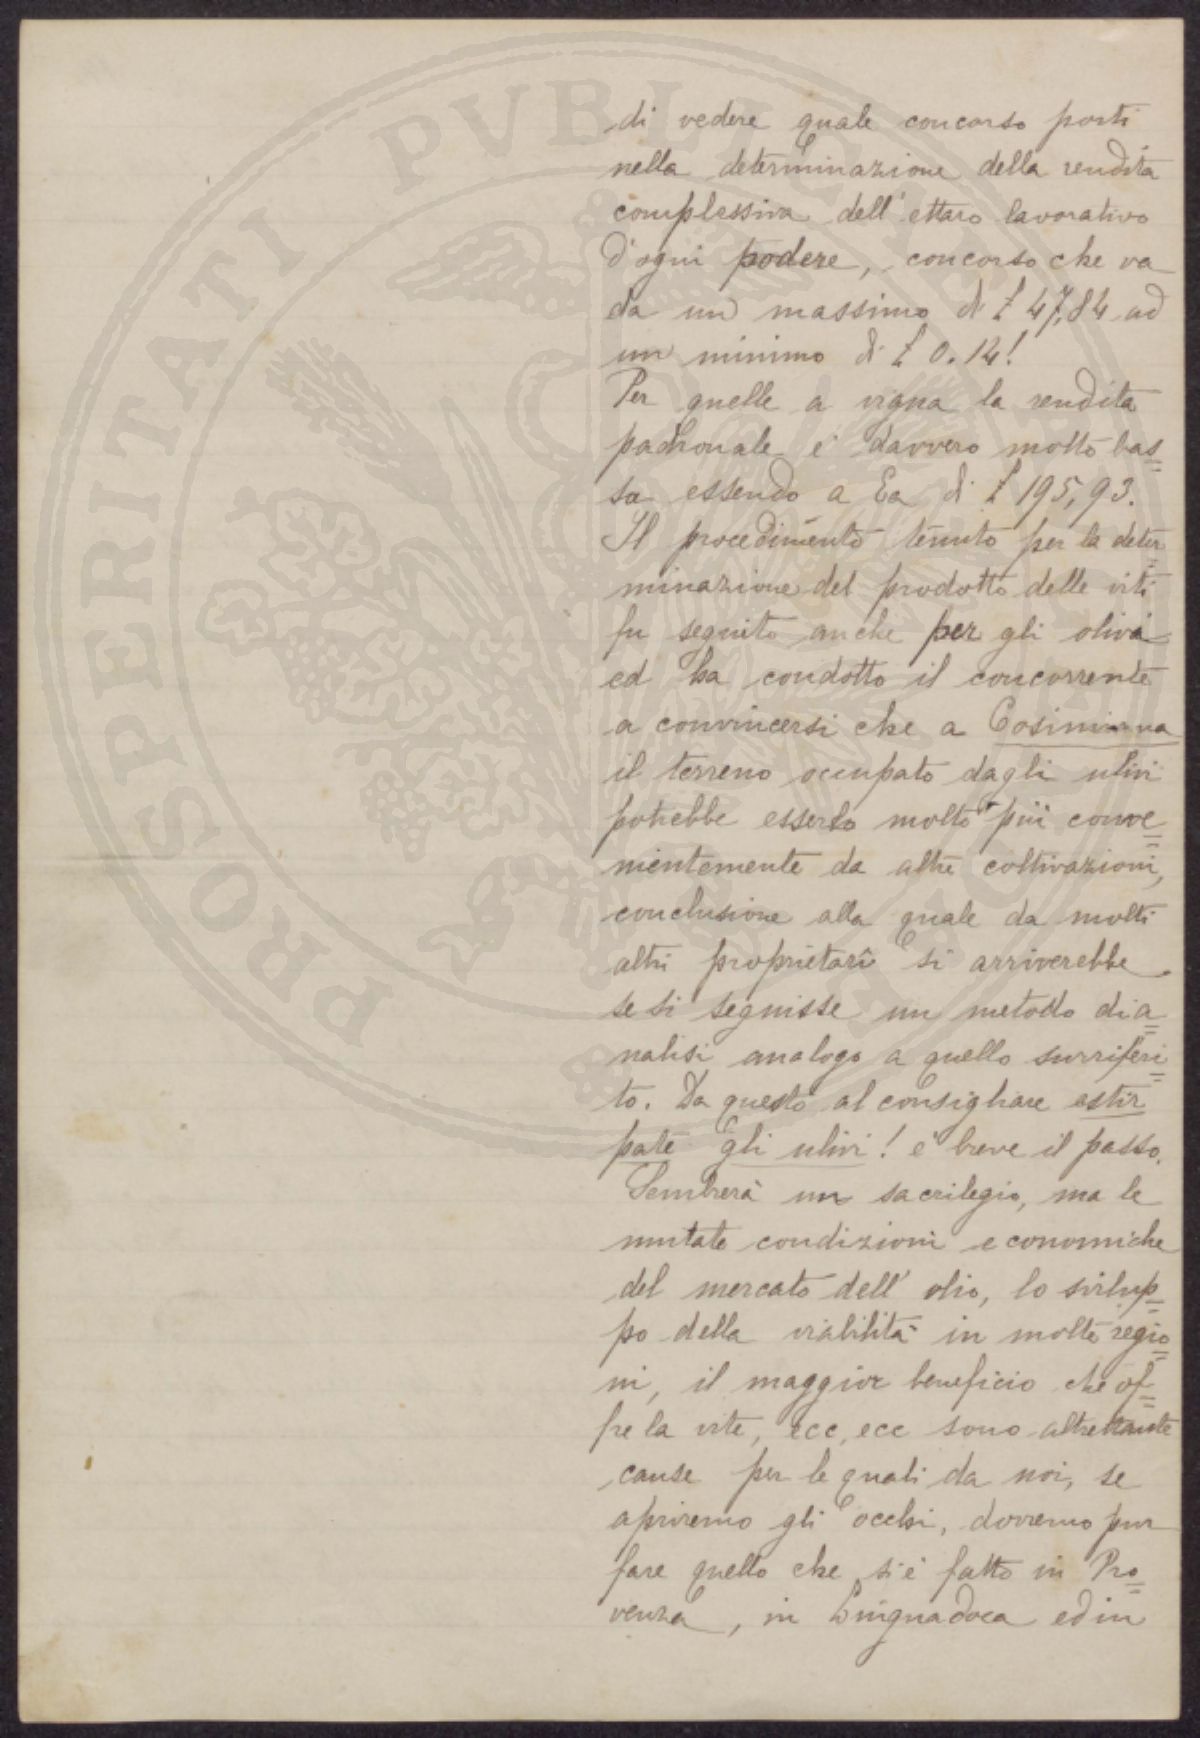 di vedere quale concorso porti
nella determinazione della rendita
complessiva dell'ettaro lavorativo
d'ogni podere, concorso che va
da un massimo di £ 47,84 ad
un minimo di £ 0.14!
Per quelle a vigna la rendita
padronale è davvero molto bas=
sa essendo a Ea di £ 195,93.
Il procedimento tenuto per la deter=
minazione del prodotto delle viti
fu seguito anche per gli olivi
ed ha condotto il concorrente
a convincersi che a Cosimiana
il terreno occupato dagli ulivi
potrebbe esserlo molto più conve=
nientemente da altre coltivazioni,
conclusione alla quale da molti
altri proprietarî si arriverebbe
se si seguisse un metodo di a=
nalisi analogo a quello surriferi=
to. Da questo al consigliare estir
pate gli ulivi! è breve il passo.
Sembrerà un sacrilegio, ma le
mutate condizioni economiche
del mercato dell'olio, lo svilup=
po della viabilità in molte regio=
ni, il maggior beneficio che of=
fre la vite, ecc, ecc sono altrettante
cause per le quali da noi, se
apriremo gli occhi, dovremo pur
fare quello che si è fatto in Pro=
venza, in Linguadoca ed in
PROSPERITATI PVBLICAE